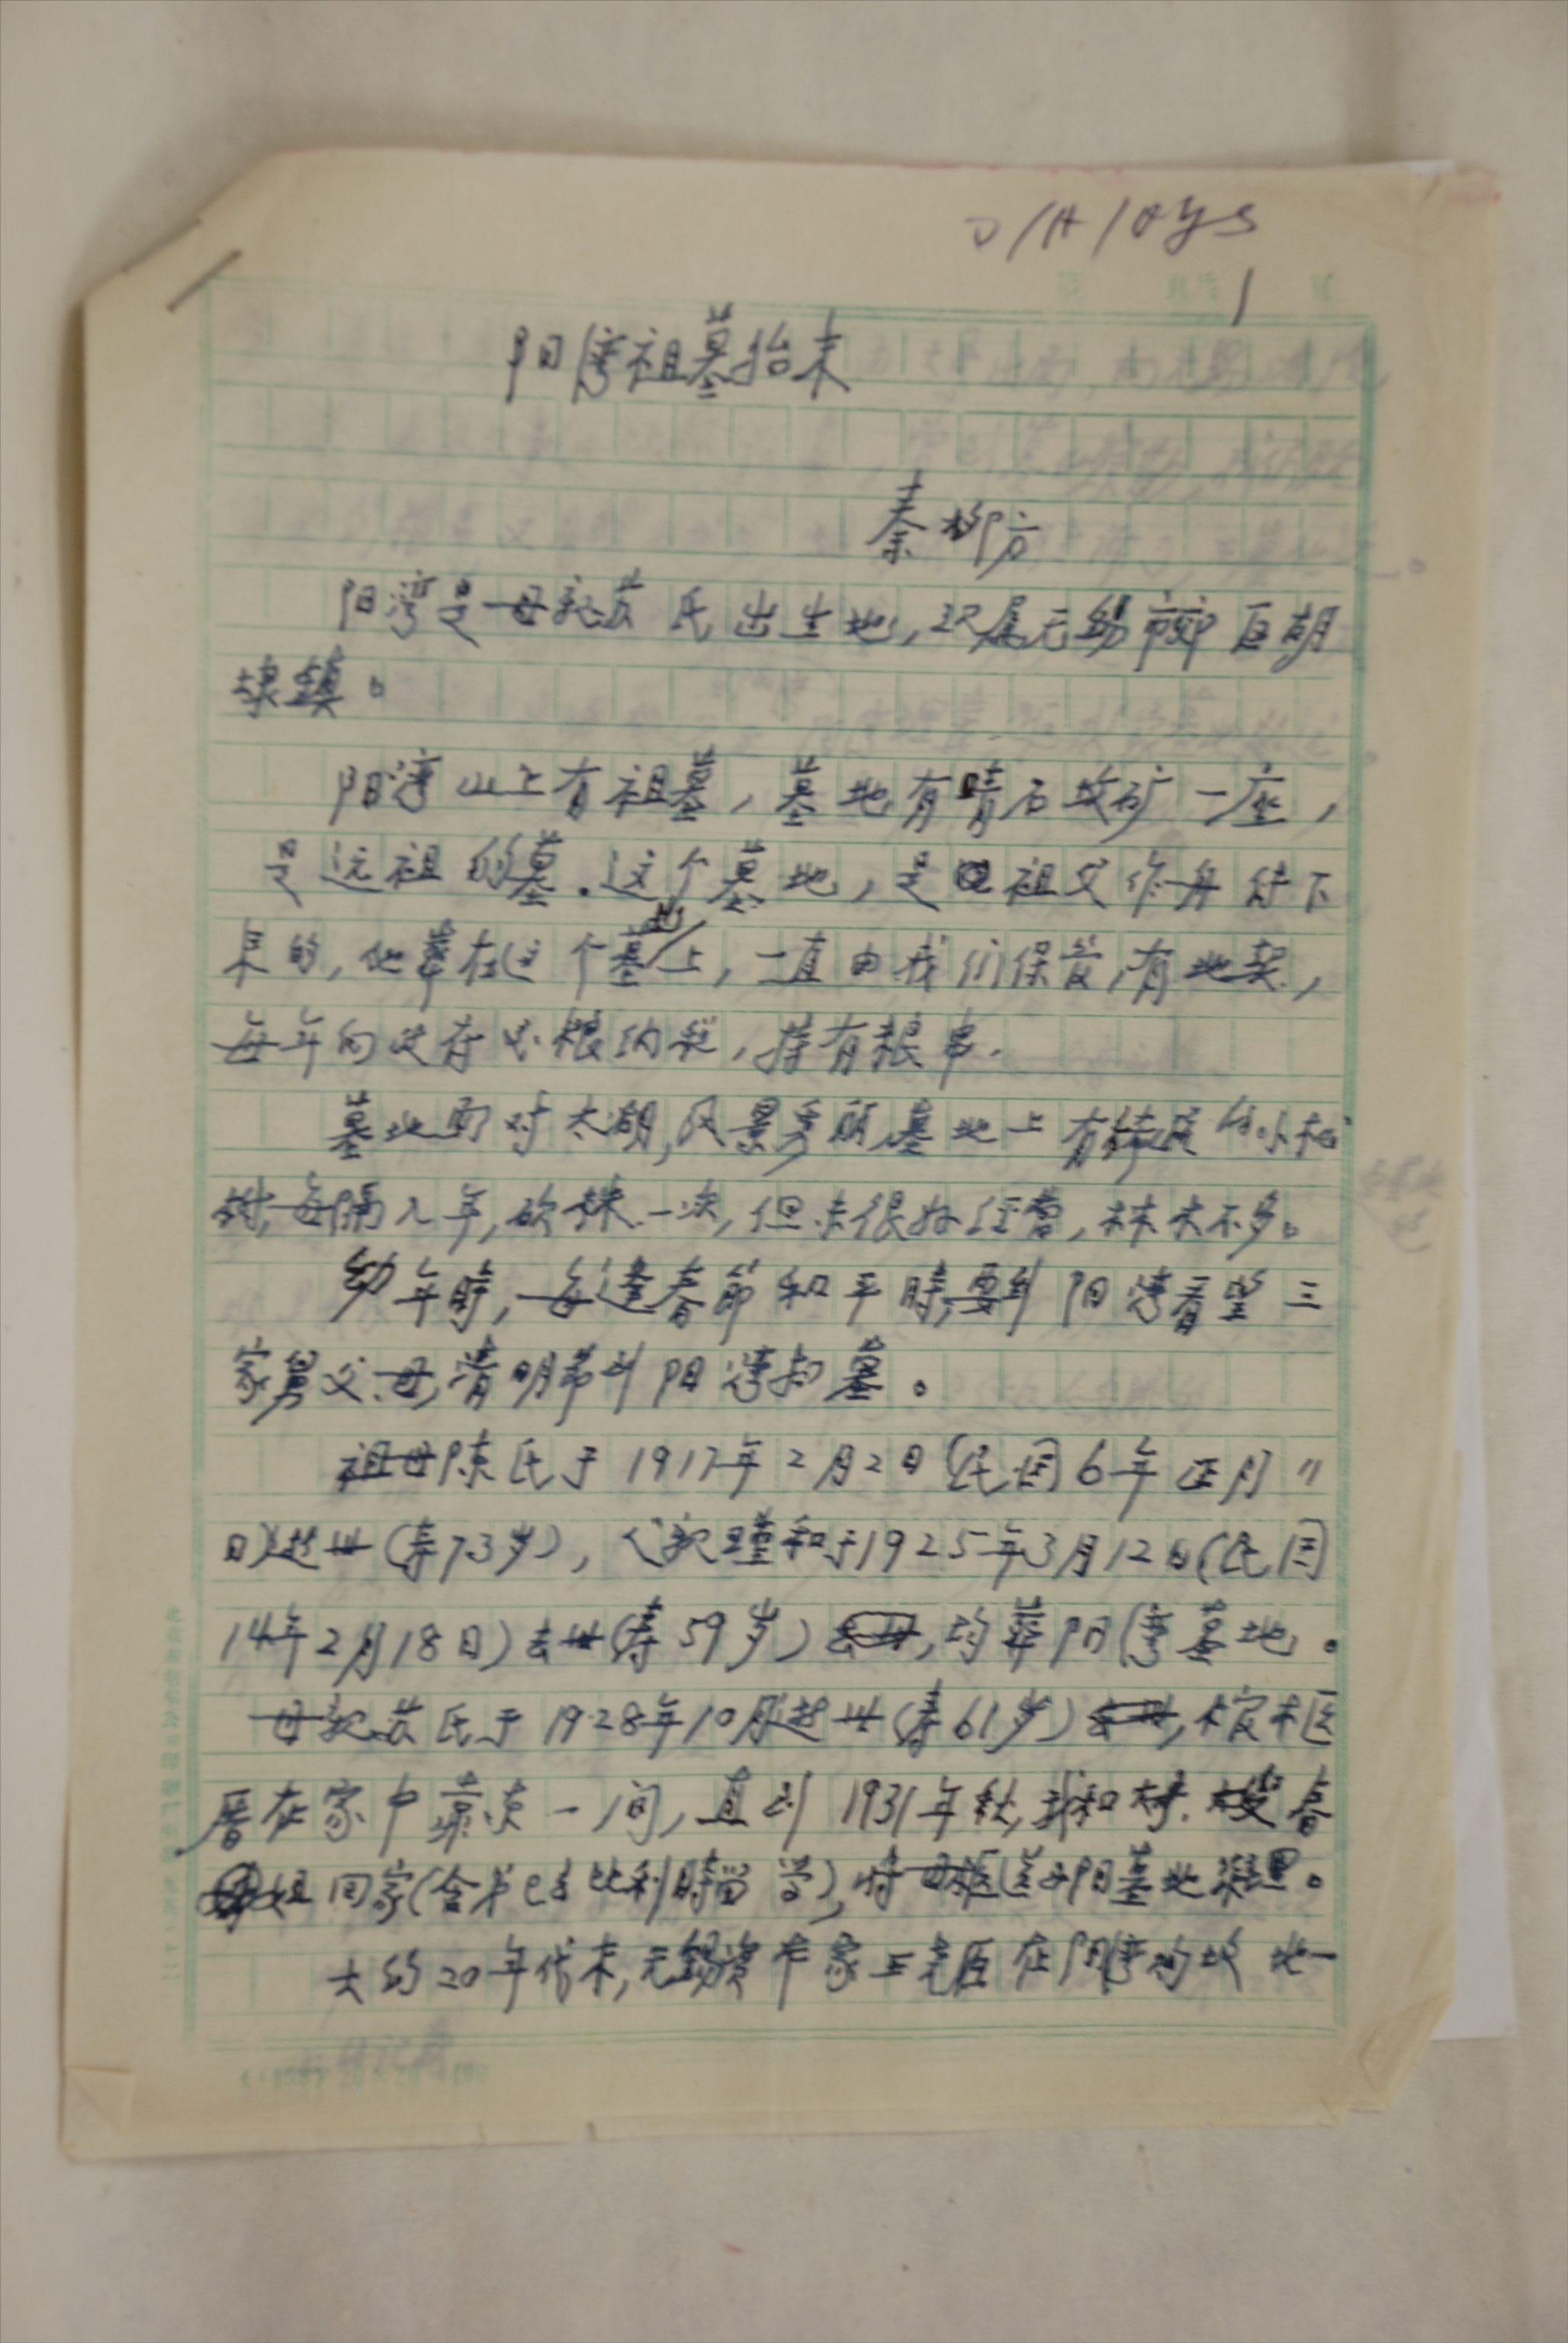 1
阳湾祖墓始末
秦柳方
阳湾是母亲苏氏出生地,现属无锡市郊区胡
埭镇。
阳湾山上有祖墓,墓地有青石坟圹一座,
是远祖的墓.这个墓地,是祖父作舟传下
来的,他葬在这个墓地上,一直由我们保管,有地契,
每年向政府完粮纳税,持有粮串.
墓地面对太湖,风景秀丽,墓地上有 的小松
树,每隔几年,砍 一次,但未很好经营,林木不多。
幼年時,每逢春節和平時,要到阳湾看望三
家舅父、母,清明節到阳湾扫墓。
祖母陈氏于1917年2月2日(民国6年正月11
日)逝世(寿73岁),父亲瑾和于1925年3月12日(民国
14年2月18日)去世(寿59岁),均葬阳湾墓地。
母亲苏氏于1928年10月逝世(寿61岁),棺柩
厝在家中靠東一间,直到1931年秋,我和大哥.大嫂春
姐回家(含弟已去比利時留学),将母柩送去阳墓地深埋。
大约20年代末,无锡資本家王尧臣在阳湾购坟地一